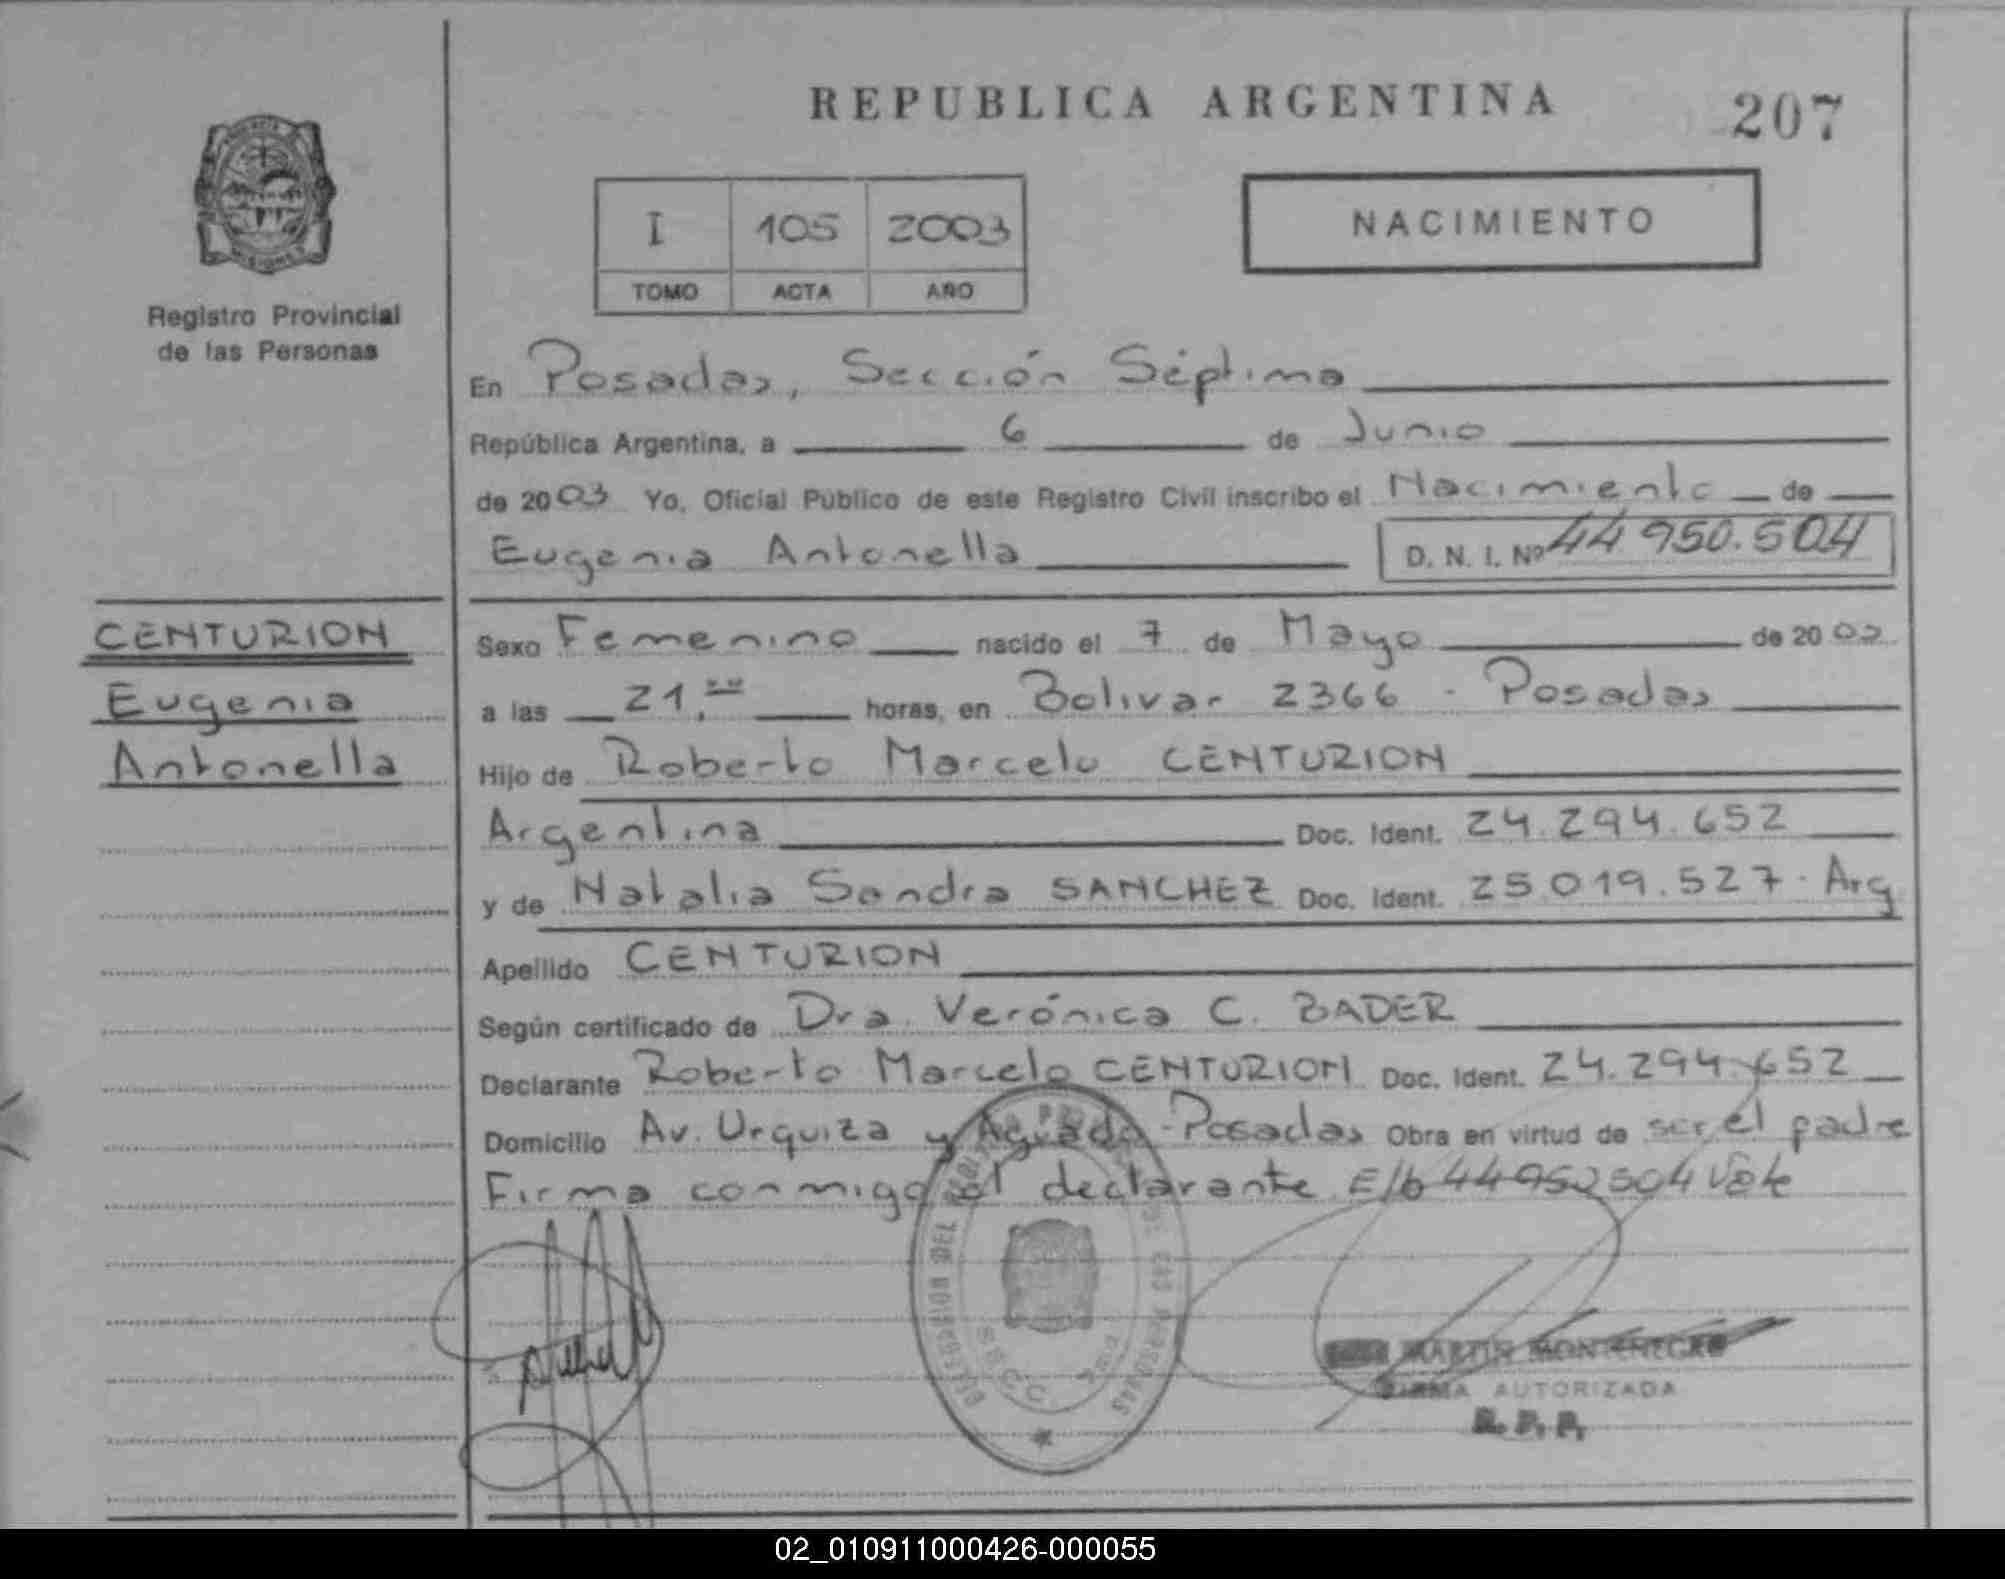 REPUBLICA ARGENTINA
207
Registro Provincial
de las Personas
I 105 2003
TOMO ACTA AÑO
NACIMIENTO
En Posadas, Sección Séptima
República Argentina, a 6 de Junio
de 2003 Yo, Oficial Público de este Registro Civil inscribo el Nacimiento de
Eugenia Antonella
D. N. I. Nº 44 950.504
CENTURION
Eugenia
Antonella
Sexo Femenino nacido el 7 de Mayo de 20
a las 21, horas, en Bolivar 2366 - Posadas
Hijo de Roberto Marcelo CENTURION
Argentina Doc. Ident. 24.294.652
y de Natalia Sandra SANCHEZ Doc. Ident. 25.019.527. Arg
Apellido CENTURION
Según certificado de Dra. Verónica C. BADER
Declarante Roberto Marcelo CENTURION Doc. Ident. 24.294.652
Domicilio Av. Urquiza y Aguado - Posadas Obra en virtud de ser el padre
Firma conmigo el declarante E/b Vale
MARTIN MONTENEGRO
FIRMA AUTORIZADA
R. P. P.
02_010911000426-000055